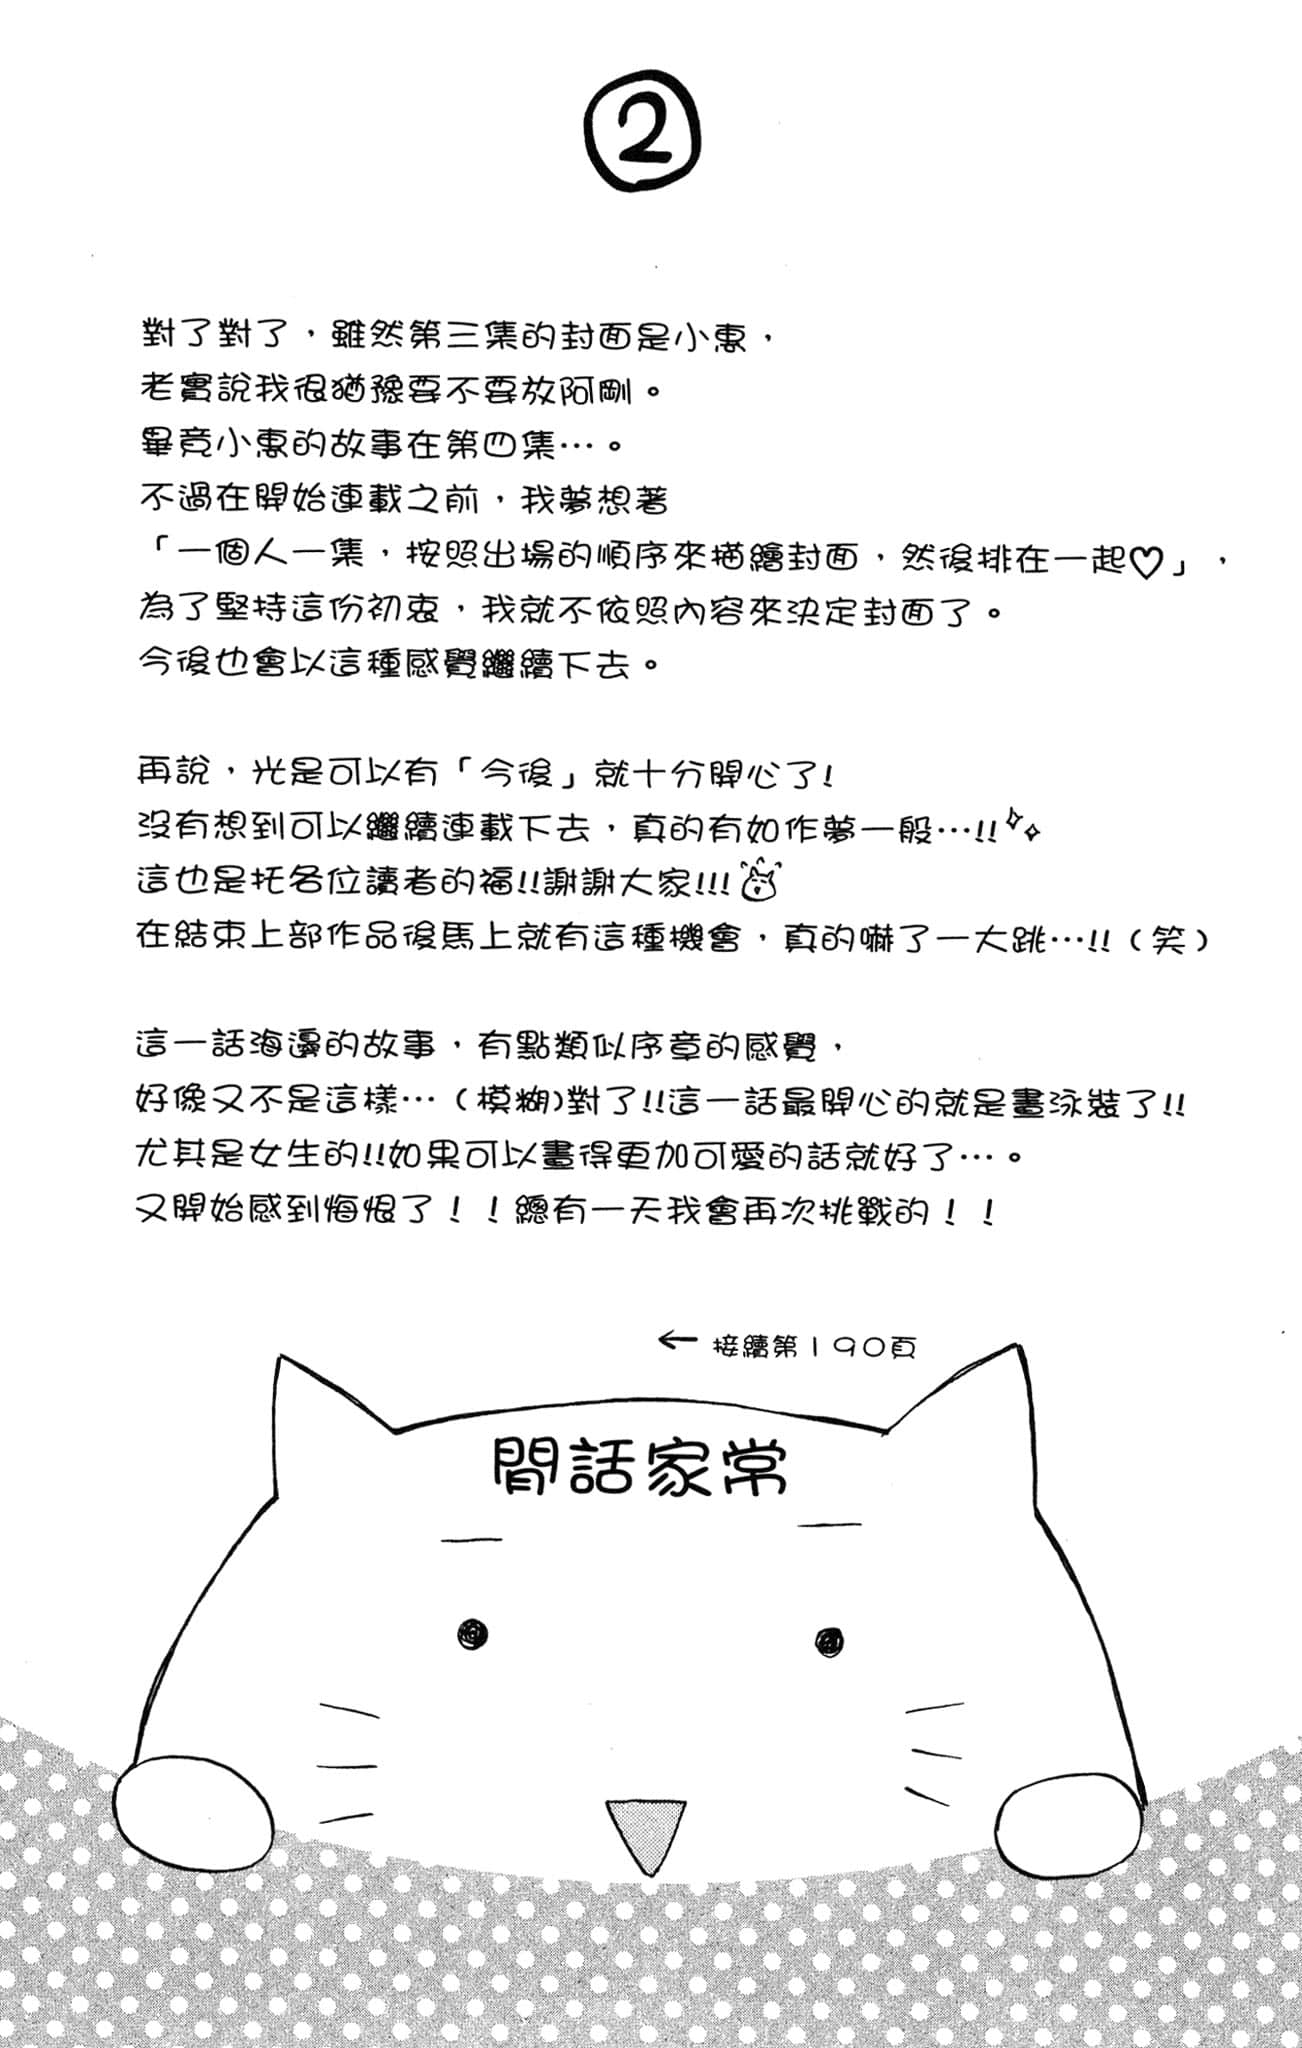 2
對了對了，雖然第三集的封面是小惠，
老實說我很猶豫要不要放阿剛。
畢竟小惠的故事在第四集…。
不過在開始連載之前，我夢想著
「一個人一集，按照出場的順序來描繪封面，然後排在一起♡」，
為了堅持這份初衷，我就不依照內容來決定封面了。
今後也會以這種感覺繼續下去。
再說，光是可以有「今後」就十分開心了!
沒有想到可以繼續連載下去，真的有如作夢一般…!!
這也是托各位讀者的福!!謝謝大家!!!
在結束上部作品後馬上就有這種機會，真的嚇了一大跳…!!（笑）
這一話海邊的故事，有點類似序章的感覺，
好像又不是這樣…（模糊)對了!!這一話最開心的就是畫泳裝了!!
尤其是女生的!!如果可以畫得更加可愛的話就好了…。
又開始感到悔恨了！！總有一天我會再次挑戰的！！
← 接續第190頁
閒話家常